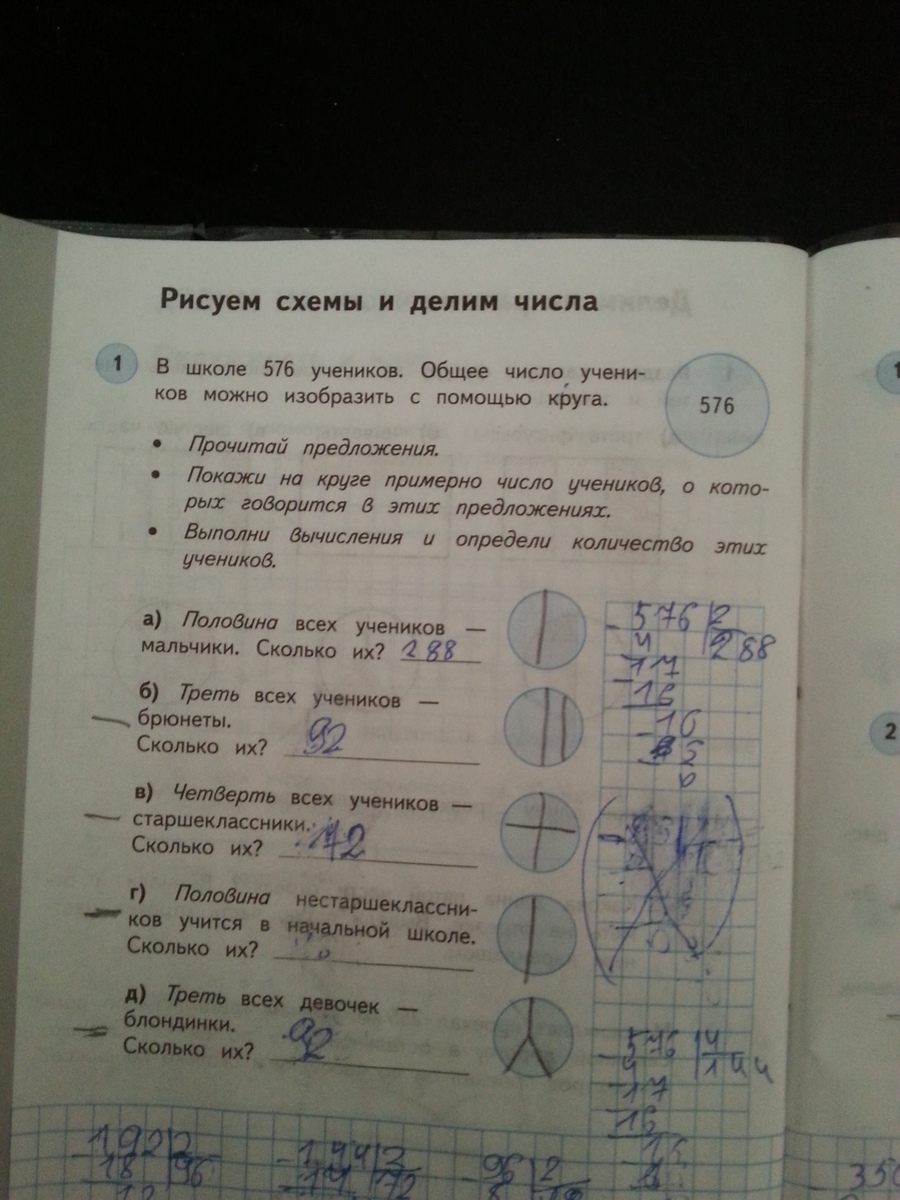 Рисуем схемы и делим числа
1 В школе 576 учеников. Общее число учени-
ков можно изобразить с помощью круга.
576
• Прочитай предложения.
• Покажи на круге примерно число учеников, о кото-
рых говорится в этих предложениях.
• Выполни вычисления и определи количество этих
учеников.
а) Половина всех учеников —
мальчики. Сколько их? 288
б) Треть всех учеников —
брюнеты.
Сколько их? 92
в) Четверть всех учеников —
старшеклассники.
Сколько их?
г) Половина нестаршеклассни-
ков учится в начальной школе.
Сколько их?
д) Треть всех девочек —
блондинки.
Сколько их?
576 2
4 288
17
16
16
576 4
4 144
17
16
192 2
18 96
144 2
14 72
96 2
2